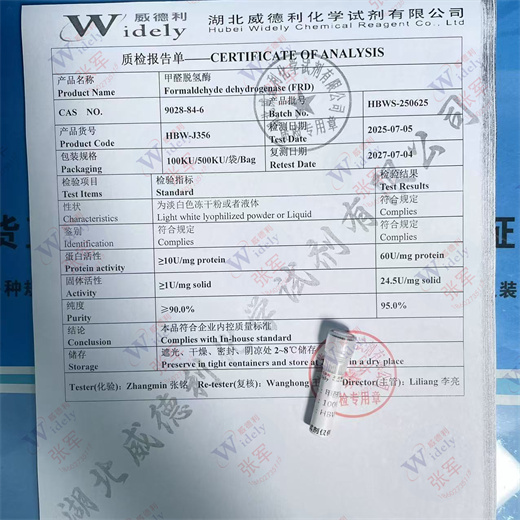 威德利
Widely
湖北威德利化学试剂有限公司
Hubei Widely Chemical Reagent Co., Ltd
质检报告单——CERTIFICATE OF ANALYSIS
产品名称
Product Name
甲醛脱氢酶
Formaldehyde dehydrogenase (FRD)
CAS NO.
9028-84-6
产品批号
Batch No.
HBWS-250625
产品货号
Product Code
HBW-J356
检测日期
Test Date
2025-07-05
包装规格
Packaging
100KU/500KU/袋/Bag
复测日期
Retest Date
2027-07-04
检验项目
Test Items
检验指标
Standard
检验结果
Test Results
性状
Characteristics
为淡白色冻干粉或者液体
Light white lyophilized powder or Liquid
符合规定
Complies
鉴别
Identification
符合规定
Complies
符合规定
Complies
蛋白活性
Protein activity
≥10U/mg protein
60U/mg protein
固体活性
Activity
≥1U/mg solid
24.5U/mg solid
纯度
Purity
≥90.0%
95.0%
结论
Conclusion
本品符合企业内控质量标准
Complies with In-house standard
储存
Storage
遮光、干燥、密封、阴凉处 2~8℃储存
Preserve in tight containers and store at in a dry place
Tester(化验): Zhangmin 张铭 Re-tester(复核): Wanghong Director(主管): Liliang 李亮
质检专用章
湖北威德利化学试剂有限公司
威德利
Widely
张军